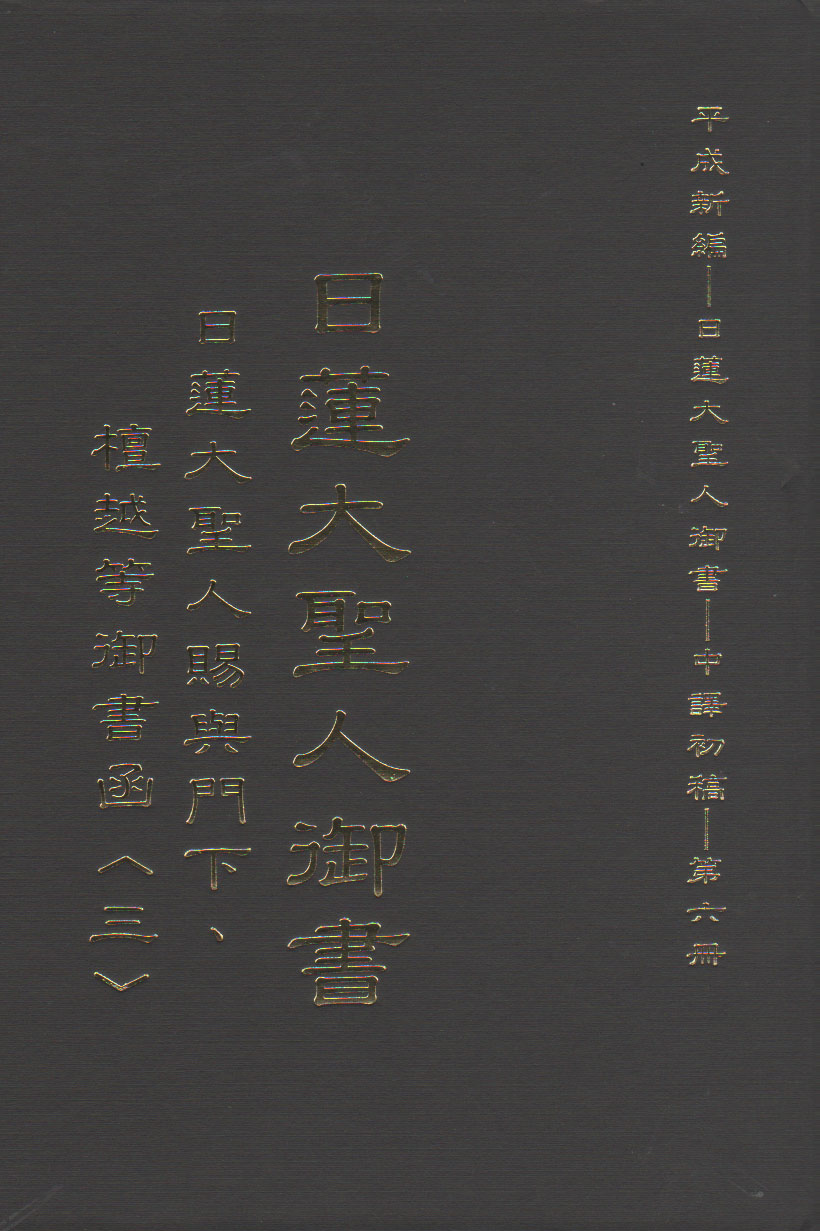 平成新編—日蓮大聖人御書—中譯初稿—第六冊
日蓮大聖人御書
日蓮大聖人賜與門下、
檀越等御書函〈三〉